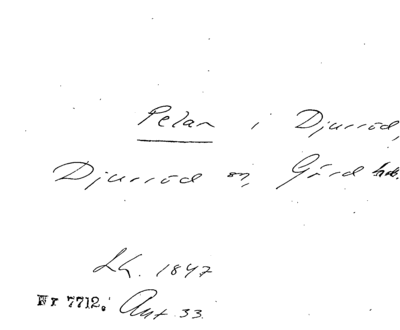 Pelan i Djurröd,
Djurröd sn, Gärd hd.
Lh. 1847
Nr 7712. Ant. 33.